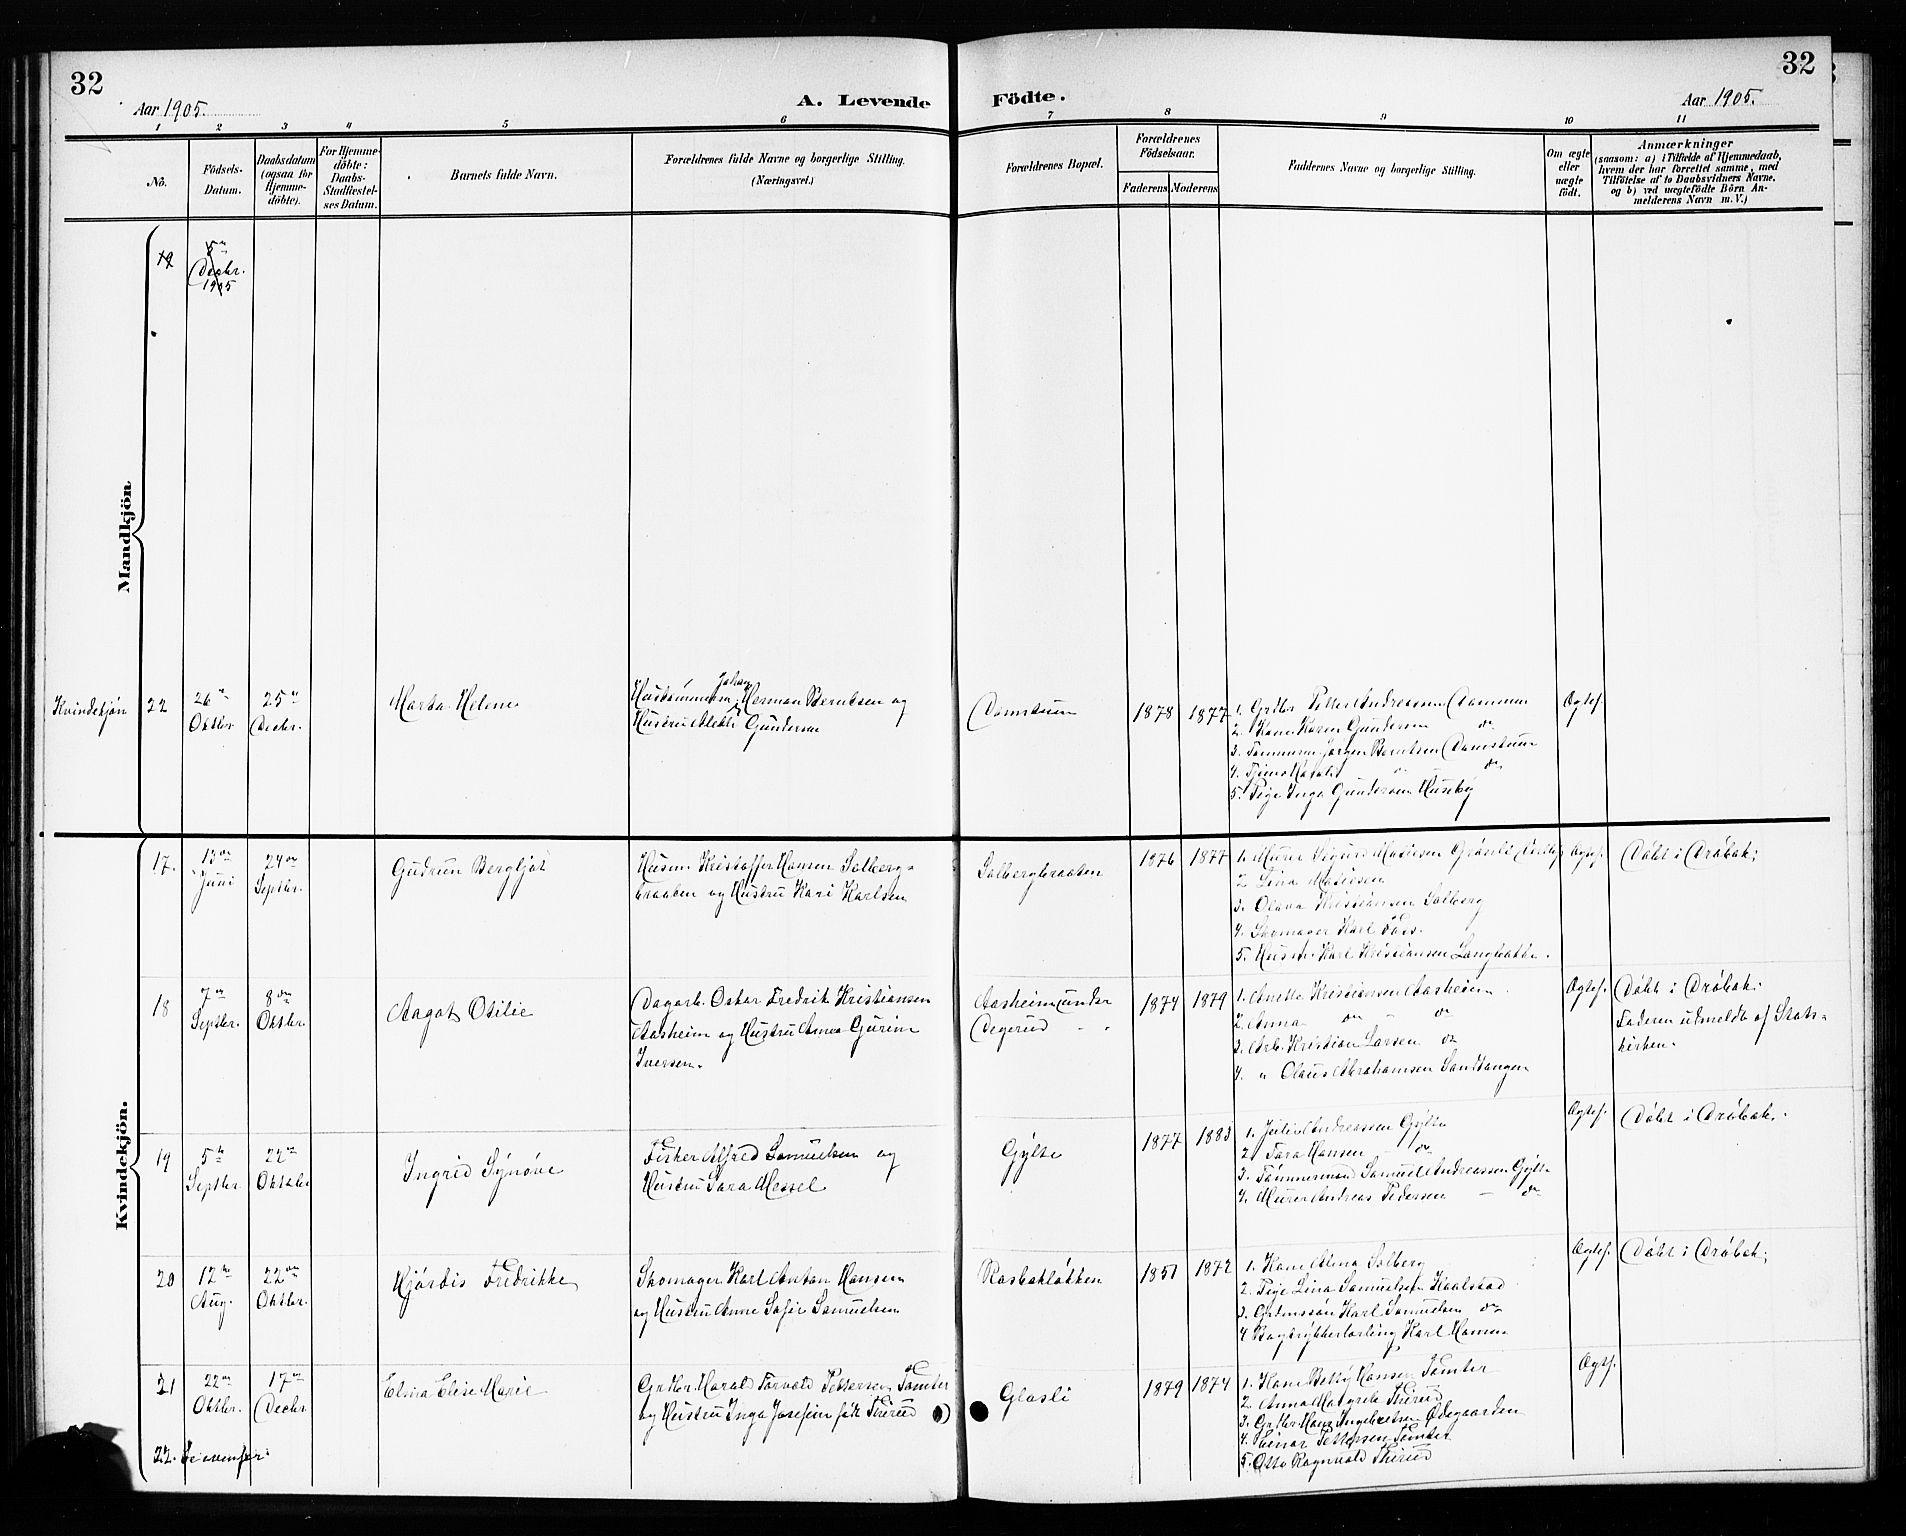 32
32
Aar 1905.
A. Levende Födte.
Aar 1905.
1 2 3 4 5 6 7 8 9 10 11
No.
Födsels-Datum.
Daabsdatum (ogsaa for Hjemme-döbte).
For Hjemme-döbte: Daabs-Stadfæstel-ses Datum.
Barnets fulde Navn.
Forældrenes fulde Navne og borgerlige Stilling. (Næringsvei.)
Forældrenes Bopæl.
Forældrenes Födselsaar.
Faderens
Moderens
Faddernes Navne og borgerlige Stilling.
Om ægte eller uægte födt.
Anmærkninger
(saasom: a) i Tilfælde af Hjemmedaab,
hvem der har forrettet samme, med
Tilföielse af to Daabsvidners Navne,
og b) ved uægtefödte Börn An-
melderens Navn m. V.)
Mandkjön
19
5te
Decbr.
1905
Kvindekjön 22
26de
Oktbr.
25de
Decbr.
Marta Helene
Johan
Herman Berntsen og
Hustru Gundersen
Damstuen
1878
1877
1. Grdbr. Petter Andreassen Dammen
2. Kone Karen Gundersen do
3. Tømmerm. Jørgen Berntsen Damstuen
4. do
5. Pige Inga Gundersen Huseby
Ægtef.
Kvindekjön.
17.
13de
Juni
24de
Septbr.
Gudrun Bergljot
Husm. Kristoffer Hansen Solberg-
braaten og Hustru Kari Karlsen
Solbergbraaten
1876
1877
1. Murer Sigurd Mathisen
2. Lina Mathisen
3. Olava Kristiansen Solberg
4. Skomager Karl
5. Husm. Karl Kristiansen Langbakke.
Ægtef.
Døbt i Drøbak;
18
7de
Septbr.
8de
Oktbr.
Aagot Otilie
Dagarb. Oskar Fredrik Kristiansen
Aasheim og Hustru Anna Gurine
Iversen.
Aasheim under
Degerud
1874
1879
1. Anette Kristiansen Aasheim
2. Anna do - do
3. Arb. Kristian Larsen do
4. " Olaus Abrahamsen Sandtangen
Ægtef.
Døbt i Drøbak.
Faderen udmeldt af Stats-
kirken.
19
5te
Septbr.
22de
Oktober
Ingrid Synøve
Fisker Alfred Samuelsen og
Hustru Sara Messel
Gylte
1877
1883
1. Julie Andreassen Gylte
2. Tara Hansen - do
3. Tømmermand Samuel Andreassen Gylte
4. Murer Andreas Pedersen - do
Ægtef.
Døbt i Drøbak.
20
12te
Aug.
22de
Oktbr.
Hjørdis Fredrikke
Skomager Karl Anton Hansen
og Hustru Anne Sofie Samuelsen
1851
1872
1. Kone Alma Solberg
2. Pige Lina Samuelsen Kaalstad
3. Grdmssøn Karl Samuelsen do
4. Bogtrykkerlærling Karl Hansen
Ægtef.
Døbt i Drøbak;
21
22de
Oktbr.
17de
Decbr.
Elma Elise Marie
Grdbr. Harald Torvald Pettersen Tomter
og Hustru Inga Josefine født Therud
Glasli
1879
1874
1. Kone Betty Hansen Tomter
2. Anna Matgrete Therud
3. Grdbr. Hans Ingebretsen Ødegaarden
4. Einar Pettersen Tomter
5. Otto Ragnvald Therud
Ægtef.
22. Se ovenfor.